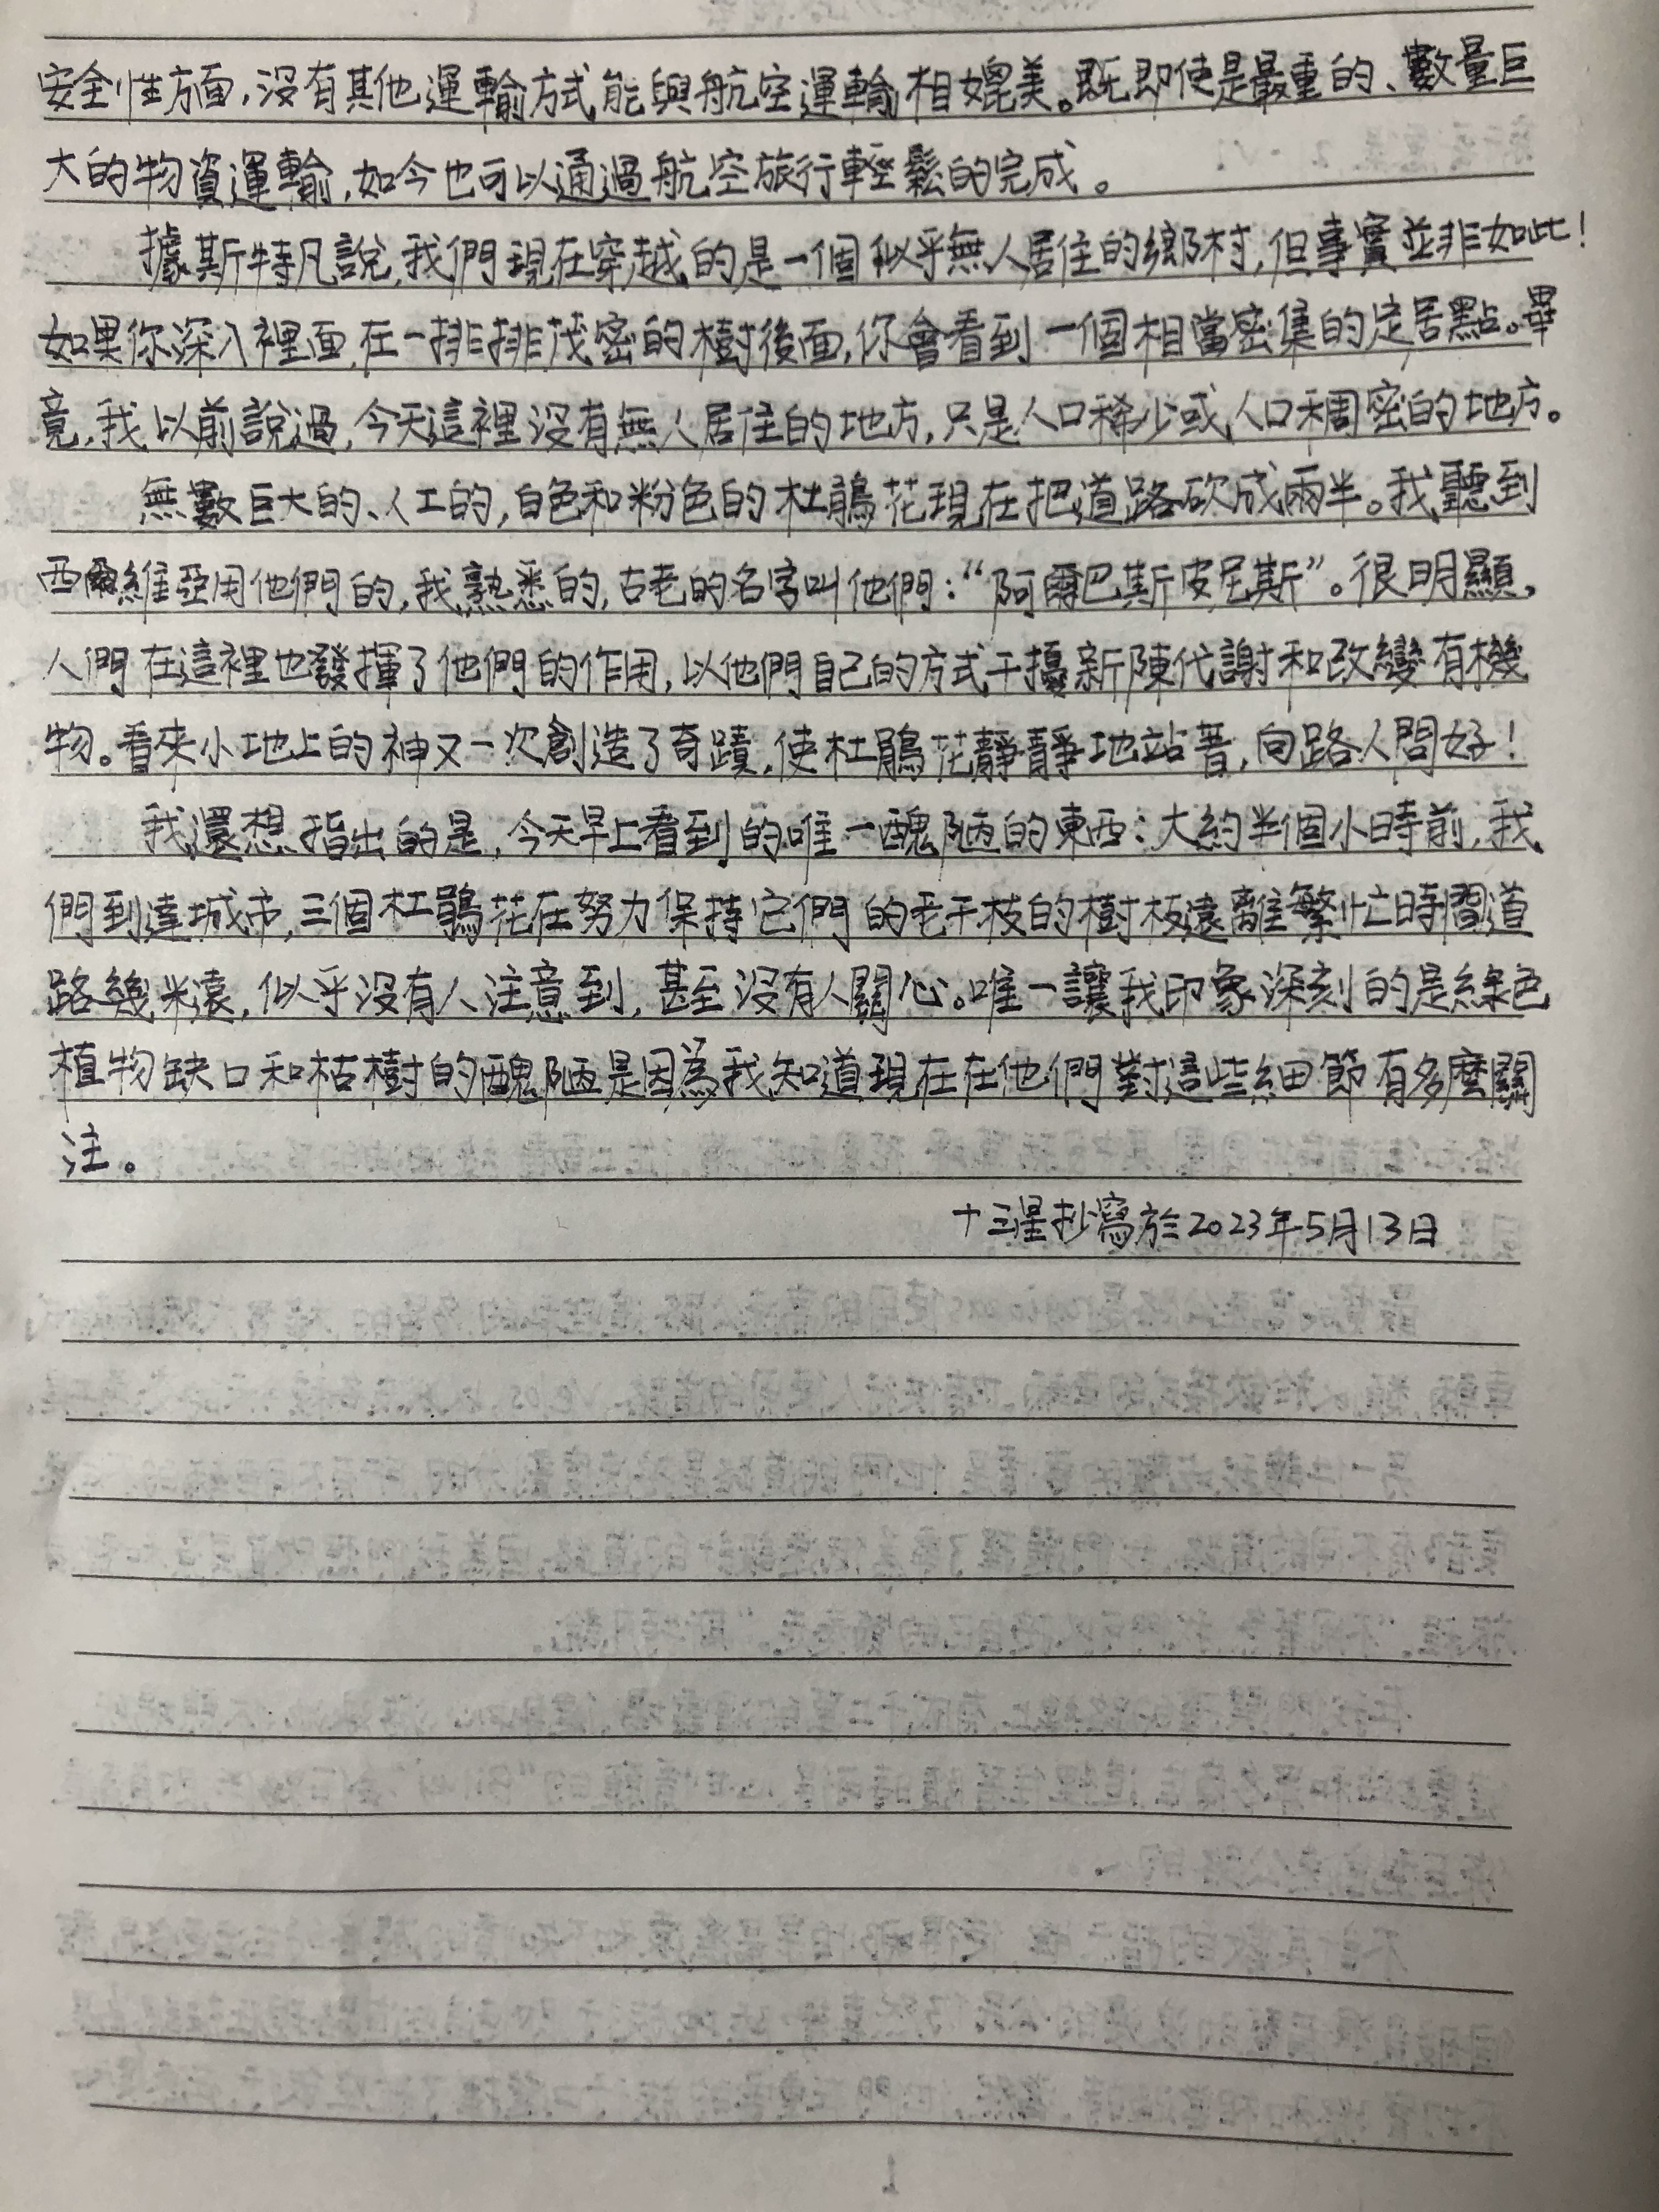 安全性方面,沒有其他運輸方式能與航空運輸相媲美。既即使是最重的、數量巨
大的物資運輸,如今也可以通過航空旅行輕鬆的完成。
據斯特凡說,我們現在穿越的是一個似乎無人居住的鄉村,但事實並非如此!
如果你深入裡面,在一排排茂密的樹後面,你會看到一個相當密集的定居點。畢
竟,我以前說過,今天這裡沒有無人居住的地方,只是人口稀少或人口稠密的地方。
無數巨大的、人工的,白色和粉色的杜鵑花現在把道路砍成兩半。我聽到
西爾維亞用他們的,我熟悉的,古老的名字叫他們:“阿爾巴斯皮尼斯”。很明顯,
人們在這裡也發揮了他們的作用,以他們自己的方式干擾新陳代謝和改變有機
物。看來小地上的神又一次創造了奇蹟,使杜鵑花靜靜地站著,向路人問好!
我還想指出的是,今天早上看到的唯一醜陋的東西:大約半個小時前,我
們到達城市,三個杜鵑花在努力保持它們的毛干枝的樹枝遠離繁忙時間道
路幾米遠,似乎沒有人注意到,甚至沒有人關心。唯一讓我印象深刻的是綠色
植物缺口和枯樹的醜陋是因為我知道現在在他們對這些細節有多麼關
注。
十三星抄寫於2023年5月13日